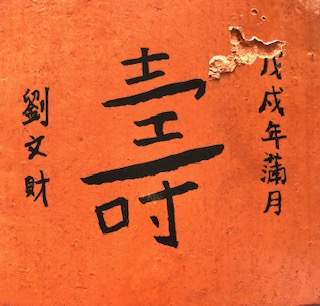 戊戌年蒲月
壽
劉文財